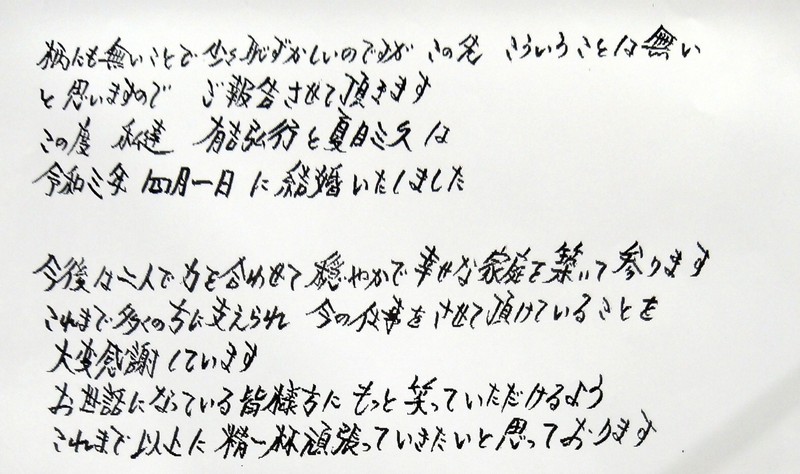 柄にも無いことで少々恥ずかしいのですが この先 こういうことは無い
と思いますので ご報告させて頂きます
この度 私達 有吉弘行と夏目三久は
令和三年 四月一日 に結婚いたしました
今後は二人で力を合わせて穏やかで幸せな家庭を築いて参ります
これまで多くの方に支えられ 今の仕事をさせて頂けていることを
大変感謝しています
お世話になっている皆様方に もっと笑っていただけるよう
これまで以上に精一杯頑張っていきたいと思っております